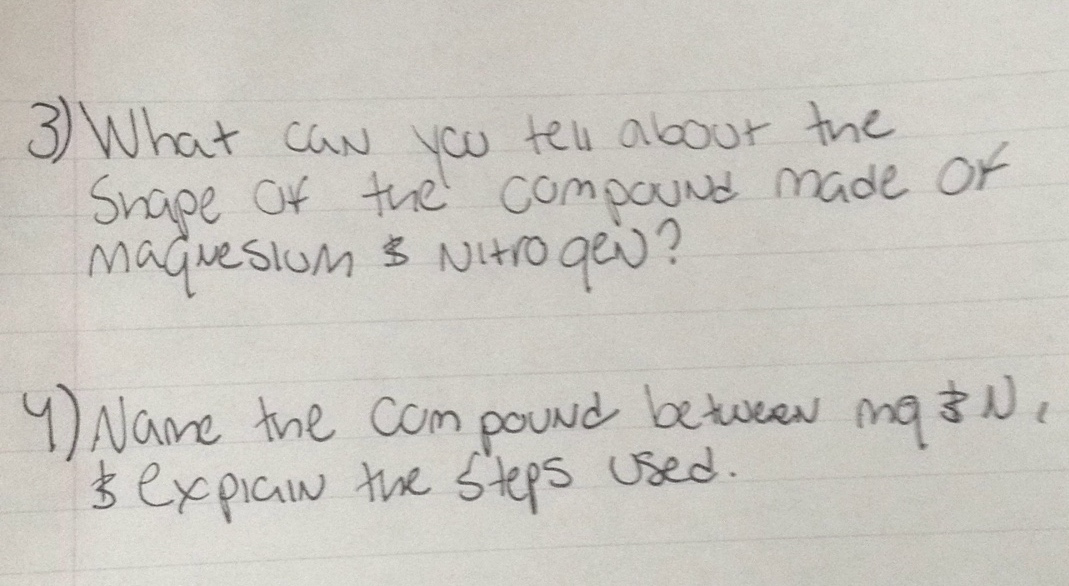 3) What can you tell about the
Shape of the compound made of
magnesium & Nitrogen?
4) Name the compound between mg & N,
& explain the steps used.